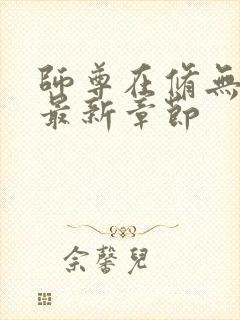 師尊在脩無
最新章節
佘馨兒